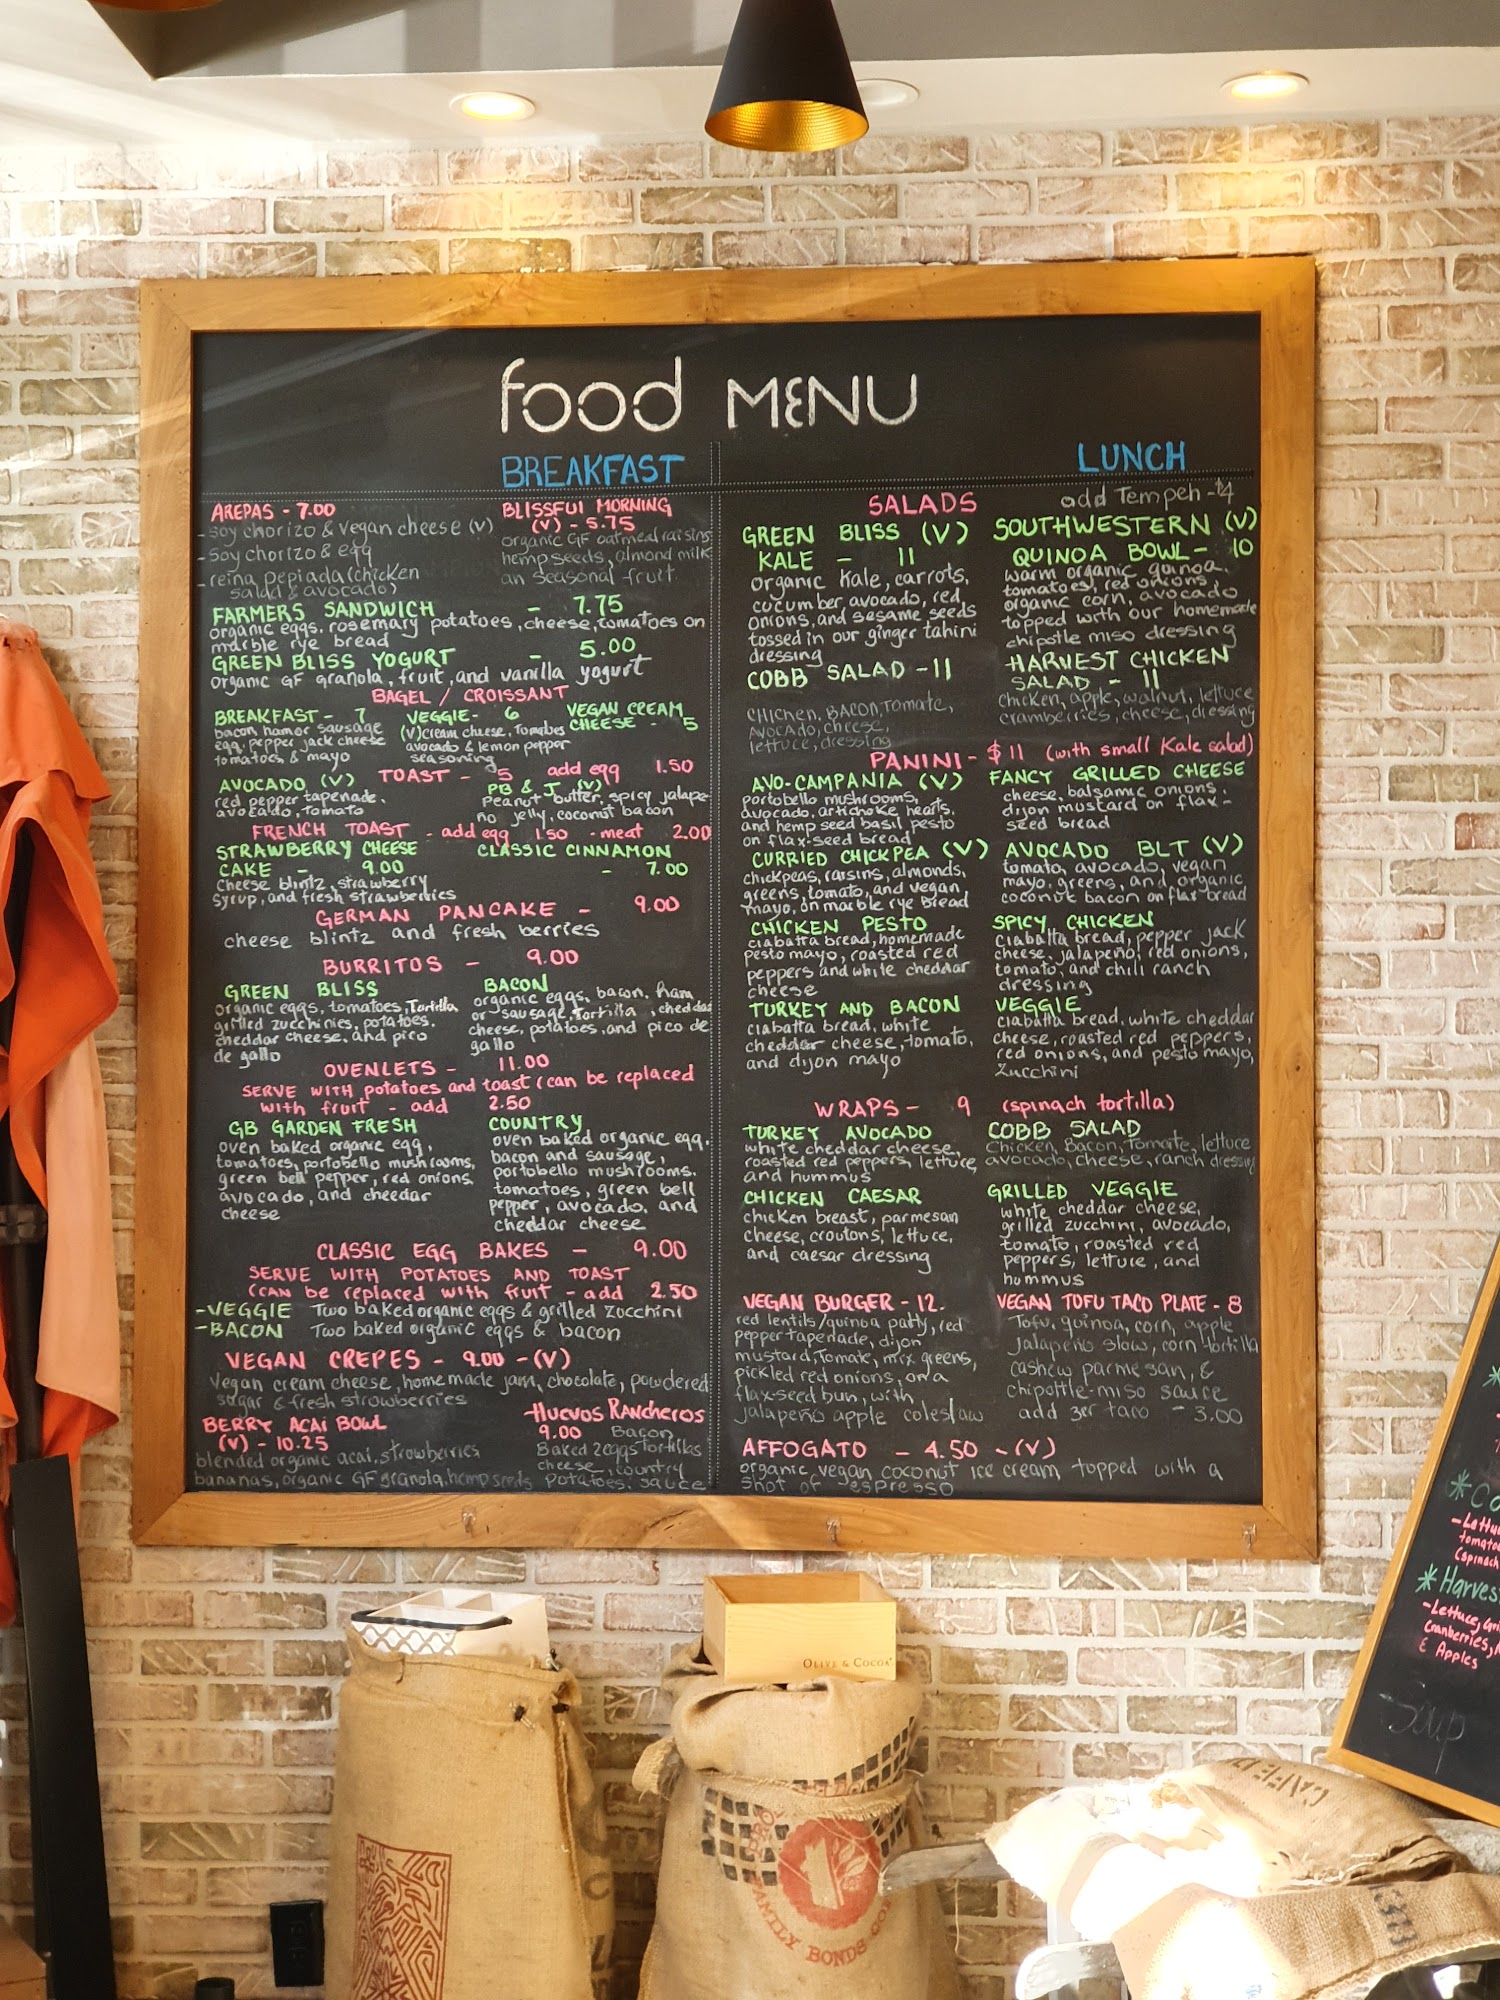 food MENU
BREAKFAST
AREPAS - 7.00
- soy chorizo & vegan cheese (V)
- soy chorizo & egg
- reina pepiada (chicken
salad & avocado)
BLISSFUl MORNING
(V) - 5.75
organic GF oatmeal raisins
hemp seeds, almond milk
an seasonal fruit.
FARMERS SANDWICH - 7.75
organic eggs, rosemary potatoes, cheese, tomatoes on
marble rye bread
GREEN BLISS YOGURT - 5.00
organic GF granola, fruit, and vanilla yogurt
BAGEL / CROISSANT
BREAKFAST - 7
bacon, ham or sausage
egg, pepper jack cheese
tomatoes & mayo
VEGGIE - 6
(V) cream cheese, Tomatoes
avocado & lemon pepper
seasoning
VEGAN CREAM
CHEESE - 5
TOAST - 5 add egg 1.50
AVOCADO (V)
red pepper tapenade,
avocado, tomato
PB & J (V)
Peanut butter, spicy jalape
no jelly, coconut bacon
FRENCH TOAST - add egg 1.50 - meat 2.00
STRAWBERRY CHEESE
CAKE - 9.00
cheese blintz, strawberry
syrup, and fresh strawberries
CLASSIC CINNAMON
- 7.00
GERMAN PANCAKE - 9.00
cheese blintz and fresh berries
BURRITOS - 9.00
GREEN BLISS
organic eggs, tomatoes, Tortilla
grilled zucchinies, potatoes,
cheddar cheese, and pico
de gallo
BACON
organic eggs, bacon, ham
or sausage, Tortilla, cheddar
cheese, potatoes, and pico de
gallo
OVENLETS - 11.00
SERVE WITH potatoes and toast (can be replaced
with fruit - add 2.50
GB GARDEN FRESH
oven baked organic egg,
tomatoes, portobello mushrooms,
green bell pepper, red onions,
avocado, and cheddar
cheese
COUNTRY
oven baked organic egg,
bacon and sausage,
portobello mushrooms,
tomatoes, green bell
pepper, avocado, and
cheddar cheese
CLASSIC EGG BAKES - 9.00
SERVE WITH POTATOES AND TOAST
(CAN be replaced with fruit - add 2.50
- VEGGIE Two baked organic eggs & grilled zucchini
- BACON Two baked organic eggs & bacon
VEGAN CREPES - 9.00 - (V)
Vegan cream cheese, homemade jam, chocolate, powdered
sugar & fresh strowberries
BERRY ACAi BOWL
(V) - 10.25
blended organic acai, strowberries
bananas, organic GF granola, hemp seeds
Huevos RANcheros
9.00 Bacon
Baked 2eggs Tortillas
cheese, country
potatoes, sauce
LUNCH
SALADS
add Tempeh - $4
GREEN BLISS (V)
KALE - 11
organic kale, carrots,
cucumber, avocado, red
onions, and sesame seeds
tossed in our ginger tahini
dressing
SOUTHWESTERN (V)
QUINOA BOWL - 10
warm organic quinoa,
tomatoes, red onions,
organic corn, avocado
topped with our homemade
chipotle miso dressing
COBB SALAD - 11
CHICKEN, BACON, TOMATE,
AVOCADO, cheese,
lettuce, dressing
HARVEST CHICKEN
SALAD - 11
chicken, apple, walnut, lettuce
cramberries, cheese, dressing
PANINI - $11 (with small Kale salad)
AVO-CAMPANIA (V)
portobello mushrooms,
avocado, artichoke hearts,
and hemp seed basil pesto
on flax-seed bread
FANCY GRILLED CHEESE
cheese, balsamic onions,
dijon mustard on flax-
seed bread
CURRIED CHICKPEA (V)
chickpeas, raisins, almonds,
greens, tomato, and vegan
mayo, on marble rye Bread
AVOCADO BLT (V)
tomato, avocado, vegan
mayo, greens, and organic
coconut bacon on flax bread
CHICKEN PESTO
ciabatta bread, homemade
pesto mayo, roasted red
peppers and white cheddar
cheese
SPICY CHICKEN
ciabatta bread, pepper jack
cheese, jalapeño, red onions,
tomato, and chili ranch
dressing
TURKEY AND BACON
ciabatta bread, white
cheddar cheese, tomato,
and dijon mayo
VEGGIE
ciabatta bread, white cheddar
cheese, roasted red peppers,
red onions, and pesto mayo,
Zucchini
WRAPS - 9 (spinach tortilla)
TURKEY AVOCADO
white cheddar cheese,
roasted red peppers, lettuce,
and hummus
COBB SALAD
Chicken, Bacon, Tomate, lettuce
avocado, cheese, ranch dressing
CHICKEN CAESAR
chicken breast, parmesan
cheese, croutons, lettuce,
and caesar dressing
GRILLED VEGGIE
white cheddar cheese,
grilled zucchini, avocado,
tomato, roasted red
peppers, lettuce, and
hummus
VEGAN BURGER - 12.
red lentils/quinoa patty, red
pepper tapenade, dijon
mustard, Tomate, mix greens,
pickled red onions, on a
flax-seed bun, with
jalapeño apple coleslaw
VEGAN TOFU TACO PLATE - 8
Tofu, quinoa, corn, apple
Jalapeño slow, corn tortilla
cashew parmesan, &
chipotle-miso sauce
add 3er taco - 3.00
AFFOGATO - 4.50 - (V)
organic vegan coconut ice cream topped with a
shot of espresso
* Co
- Lettu
tomato
(spinach
* Harves
- Lettuce, Gri
Cranberries,
& Apples
Soup
OLIVE & COCOA
FAMILY BONDS CO
CAFE D